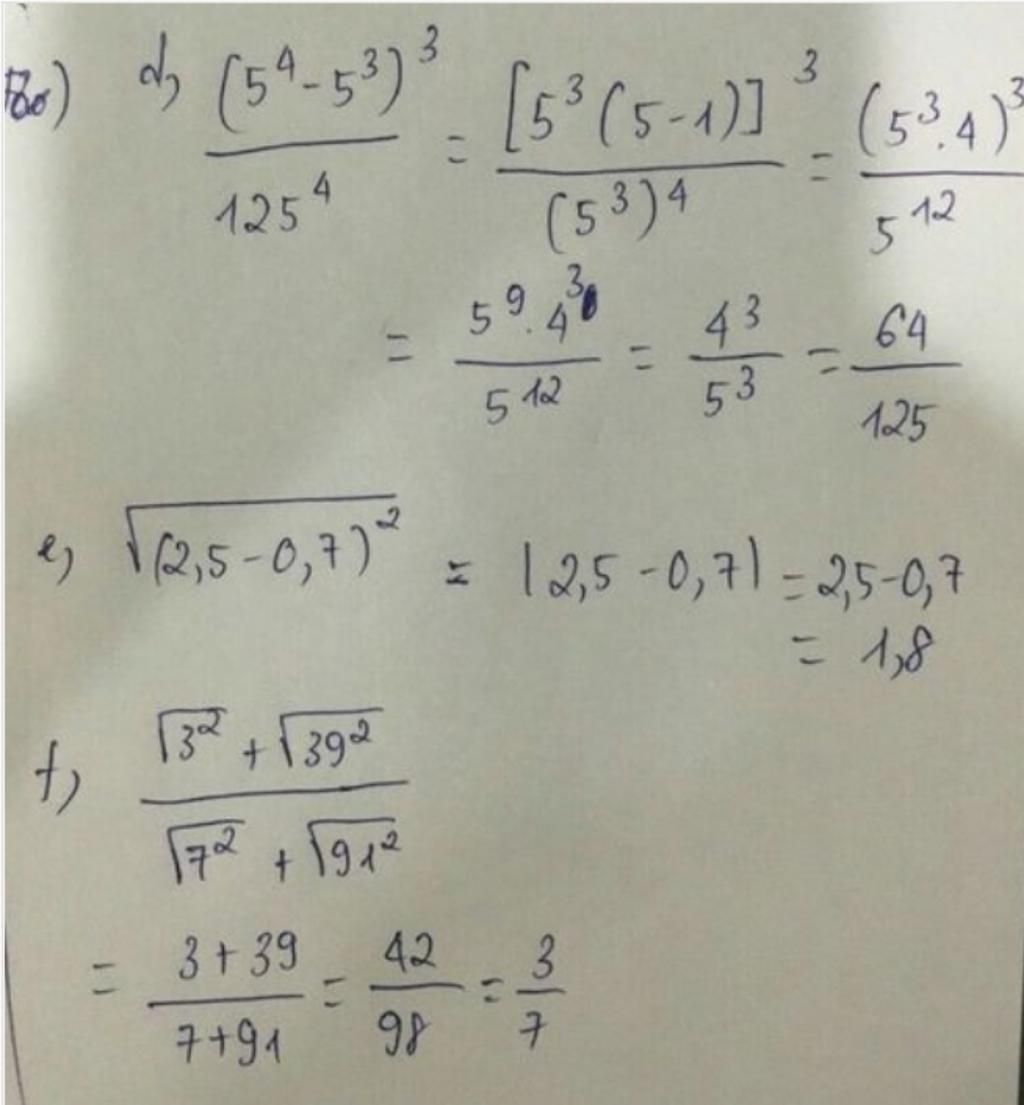 d, (5⁴-5³)³ / 125⁴ = [5³(5-1)]³ / (5³)⁴ = (5³.4)³ / 5¹²
= 5⁹.4³ / 5¹² = 4³ / 5³ = 64 / 125
e, √(2,5-0,7)² = |2,5-0,7| = 2,5-0,7
= 1,8
f, √3² + √39² / √7² + √91²
= 3+39 / 7+91 = 42 / 98 = 3 / 7